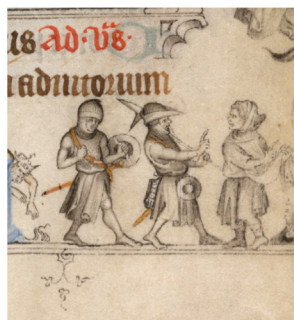 us Ad: v̄s.
adiutorium